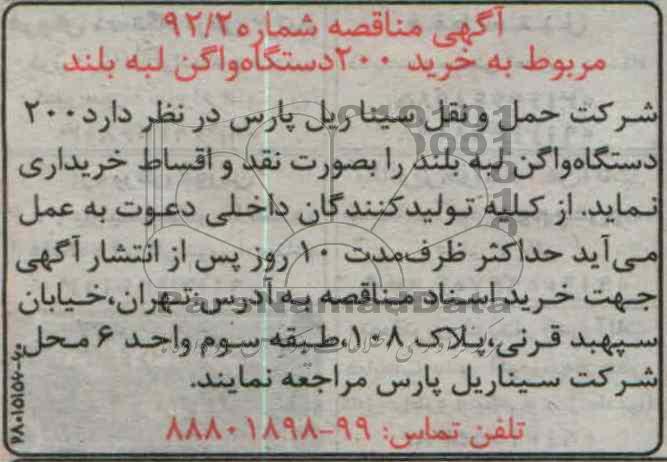 آگهی مناقصه شماره ۹۲/۲
مربوط به خرید ۲۰۰ دستگاه واگن لبه بلند
شرکت حمل و نقل سیناریل پارس در نظر دارد ۲۰۰
دستگاه واگن لبه بلند را بصورت نقد و اقساط خریداری
نماید. از کلیه تولیدکنندگان داخلی دعوت به عمل
می آید حداکثر ظرف مدت ۱۰ روز پس از انتشار آگهی
جهت خرید اسناد مناقصه به آدرس: تهران، خیابان
سپهبد قرنی، پلاک ۱۰۸، طبقه سوم واحد ۶ محل
شرکت سیناریل پارس مراجعه نمایند.
تلفن تماس: ۹۹-۸۸۸۰۱۸۹۸
ParsNamadData